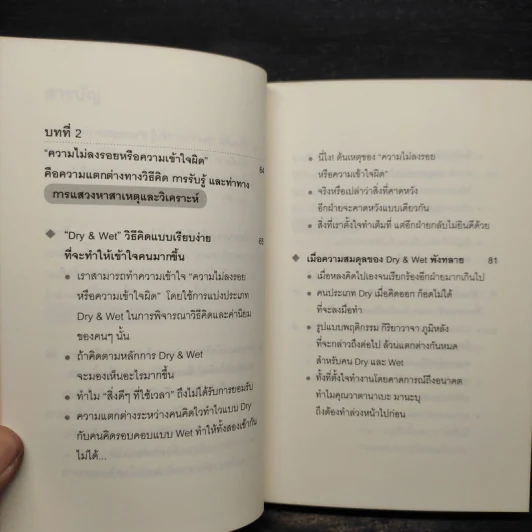 บทที่ 2
“ความไม่ลงรอยหรือความเข้าใจผิด” 64
คือความแตกต่างทางวิธีคิด การรับรู้ และท่าทาง
การแสวงหาสาเหตุและวิเคราะห์
◆ “Dry & Wet” วิธีคิดแบบเรียบง่าย 65
ที่จะทำให้เข้าใจคนมากขึ้น
• เราสามารถทำความเข้าใจ “ความไม่ลงรอย
หรือความเข้าใจผิด” โดยใช้การแบ่งประเภท
Dry & Wet ในการพิจารณาวิธีคิดและค่านิยม
ของคนๆ นั้น
• ถ้าคิดตามหลักการ Dry & Wet
จะมองเห็นอะไรมากขึ้น
• ทำไม “สิ่งดีๆ ที่ใช้เวลา” ถึงไม่ได้รับการยอมรับ
• ความแตกต่างระหว่างคนคิดไวทำไวแบบ Dry
กับคนคิดรอบคอบแบบ Wet ทำให้ทั้งสองเข้ากัน
ไม่ได้...
• นี่ไง! ต้นเหตุของ “ความไม่ลงรอย
หรือความเข้าใจผิด”
• จริงหรือเปล่าว่าสิ่งที่คาดหวัง
อีกฝ่ายจะคาดหวังแบบเดียวกัน
• สิ่งที่เราตั้งใจทำเต็มที่ แต่อีกฝ่ายกลับไม่ยินดีด้วย
◆ เมื่อความสมดุลของ Dry & Wet พังทลาย 81
• เมื่อหลงคิดไปเองจนเรียกร้องอีกฝ่ายมากเกินไป
• คนประเภท Dry เมื่อคิดออก ก็อดไม่ได้
ที่จะลงมือทำ
• รูปแบบพฤติกรรม กิริยาวาจา ภูมิหลัง
ที่จะกล่าวถึงต่อไป ล้วนแตกต่างกันหมด
สำหรับคน Dry และ Wet
• ทั้งที่ตั้งใจทำงานโดยคาดการณ์ถึงอนาคต
ทำไมคุณวาตานาเบะ มานะบุ
ถึงต้องทำล่วงหน้าไปก่อน